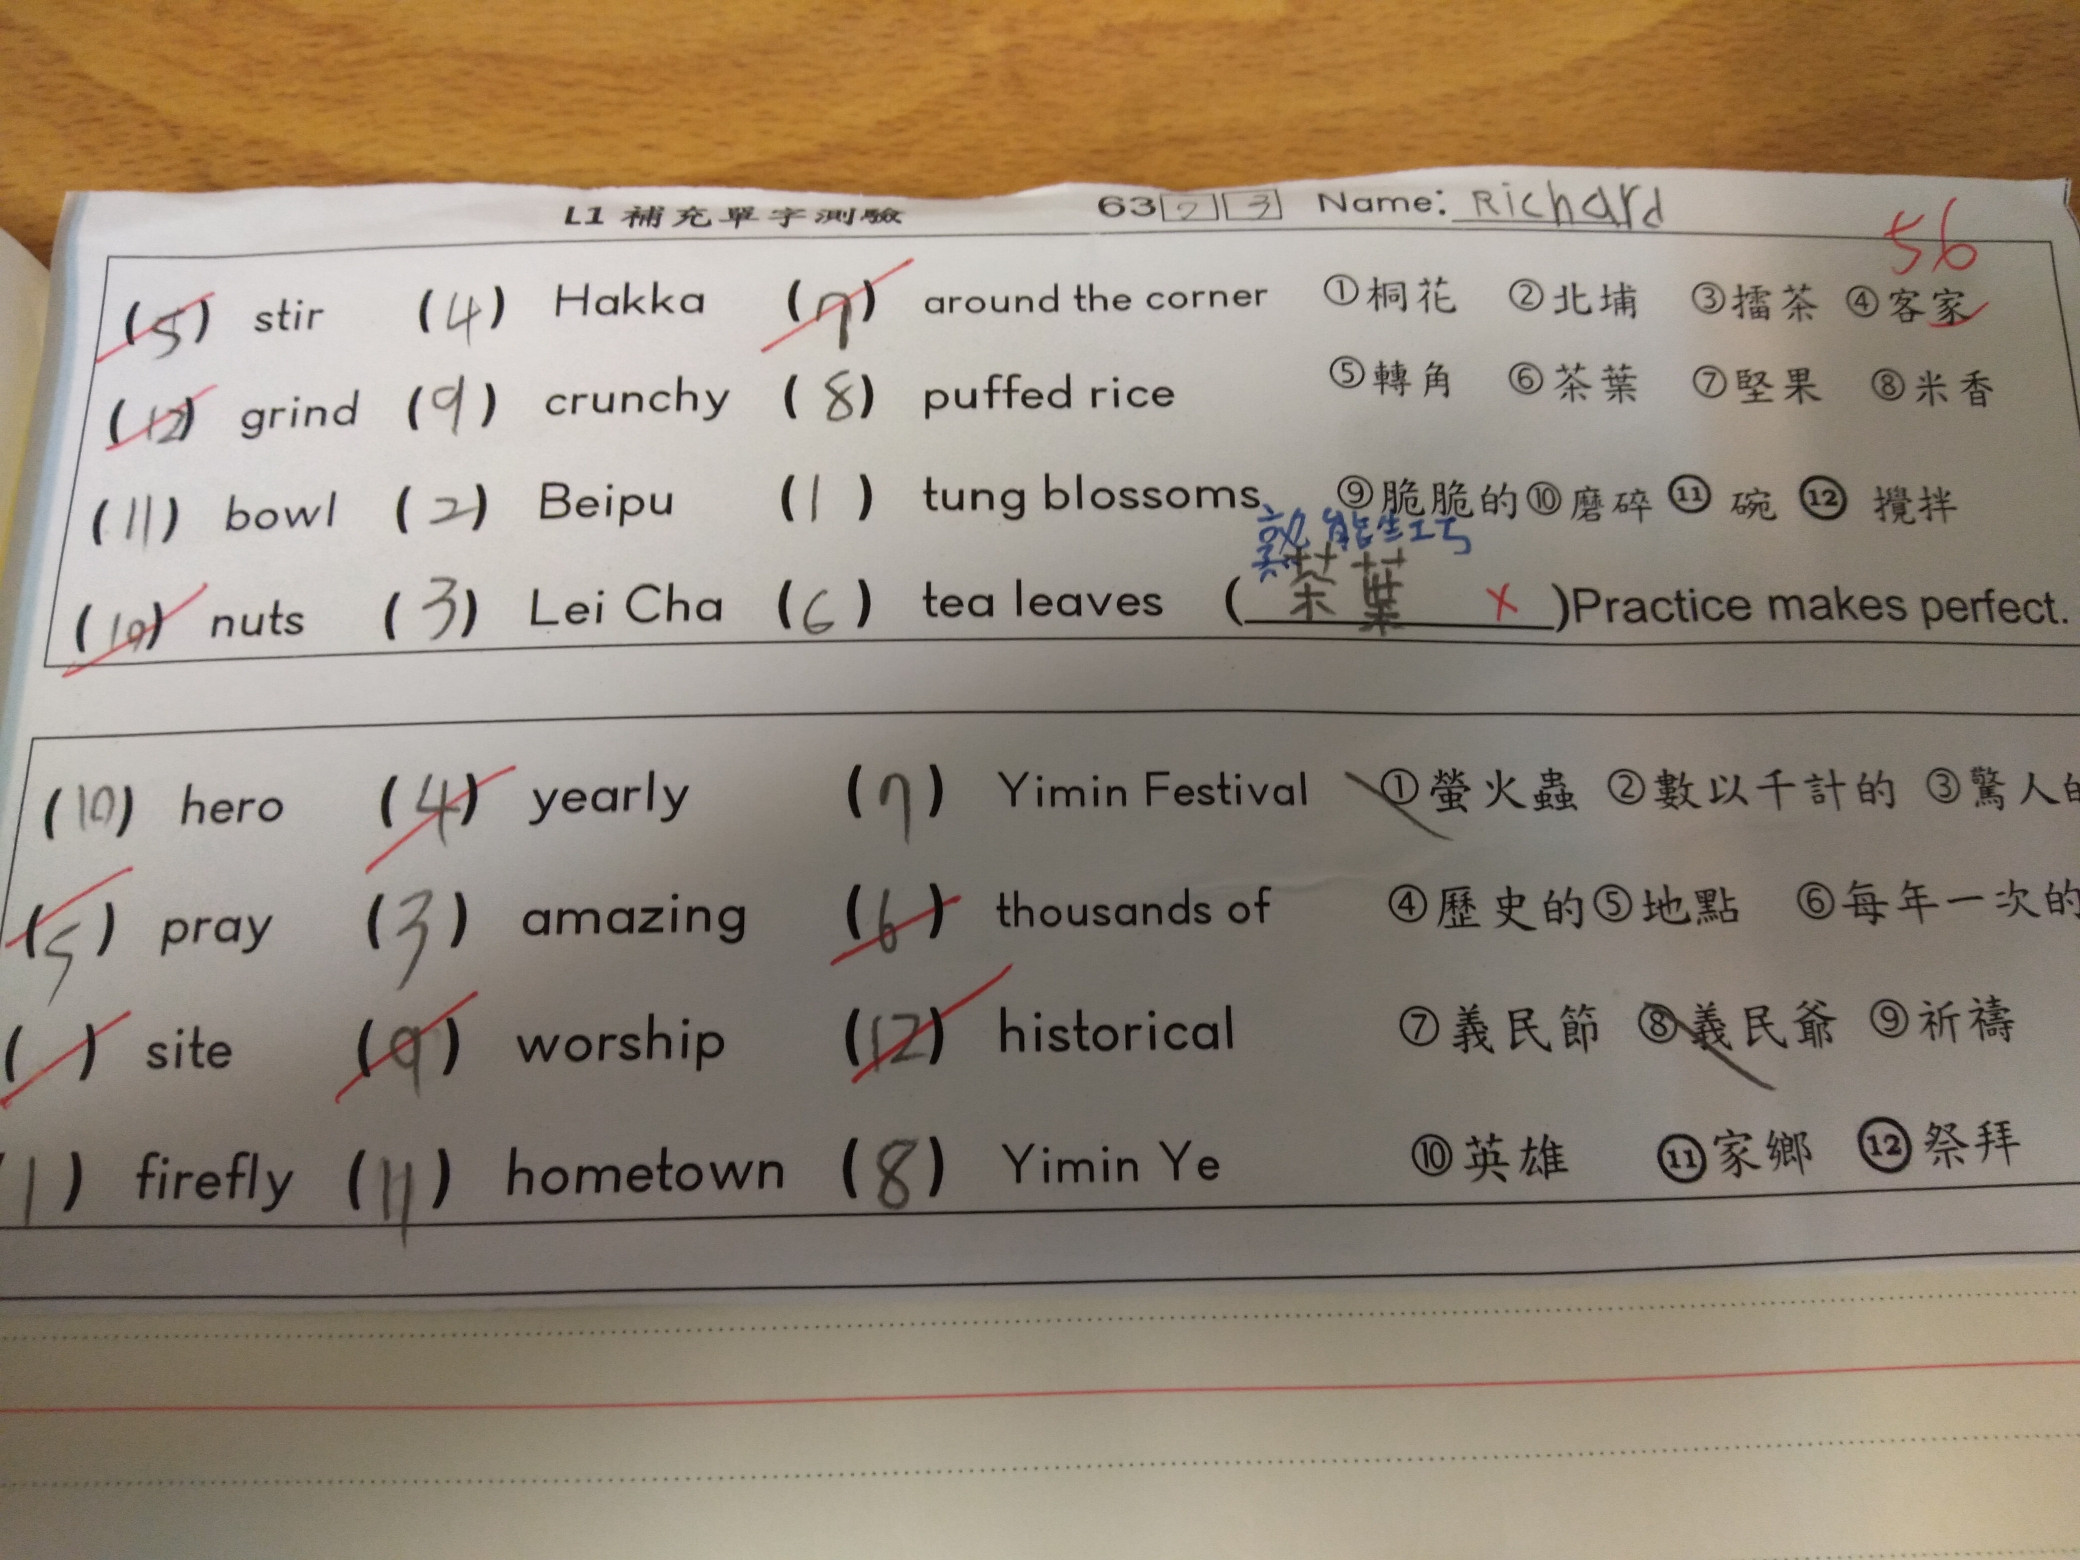 L1 補充單字測驗 63 2 3 Name: Richard
56
(5) stir (4) Hakka (7) around the corner ①桐花 ②北埔 ③擂茶 ④客家
(12) grind (9) crunchy (8) puffed rice ⑤轉角 ⑥茶葉 ⑦堅果 ⑧米香
(11) bowl (2) Beipu (1) tung blossoms ⑨脆脆的 ⑩磨碎 ⑪ 碗 ⑫ 攪拌
熟能生巧
(10) nuts (3) Lei Cha (6) tea leaves (茶葉 X)Practice makes perfect.
(10) hero (4) yearly (7) Yimin Festival ①螢火蟲 ②數以千計的 ③驚人的
(5) pray (3) amazing (6) thousands of ④歷史的 ⑤地點 ⑥每年一次的
( ) site (9) worship (12) historical ⑦義民節 ⑧義民爺 ⑨祈禱
1) firefly (11) hometown (8) Yimin Ye ⑩英雄 ⑪家鄉 ⑫祭拜